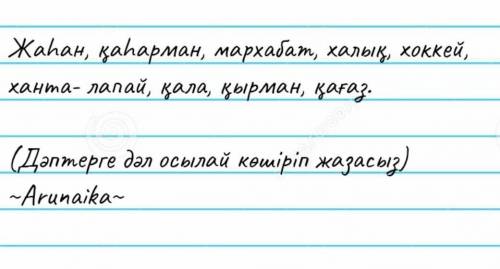 Жаһан, қаһарман, мархабат, халық, хоккей,
ханта- лапай, қала, қырман, қағаз.
(Дәптерге дәл осылай көшіріп жазасыз)
~Arunaika~